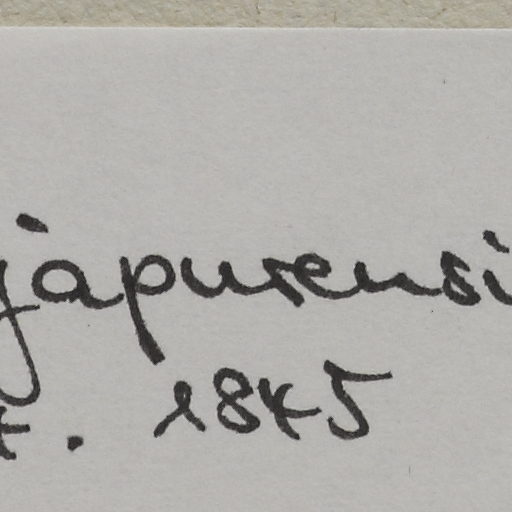 japurensi
t. 1845